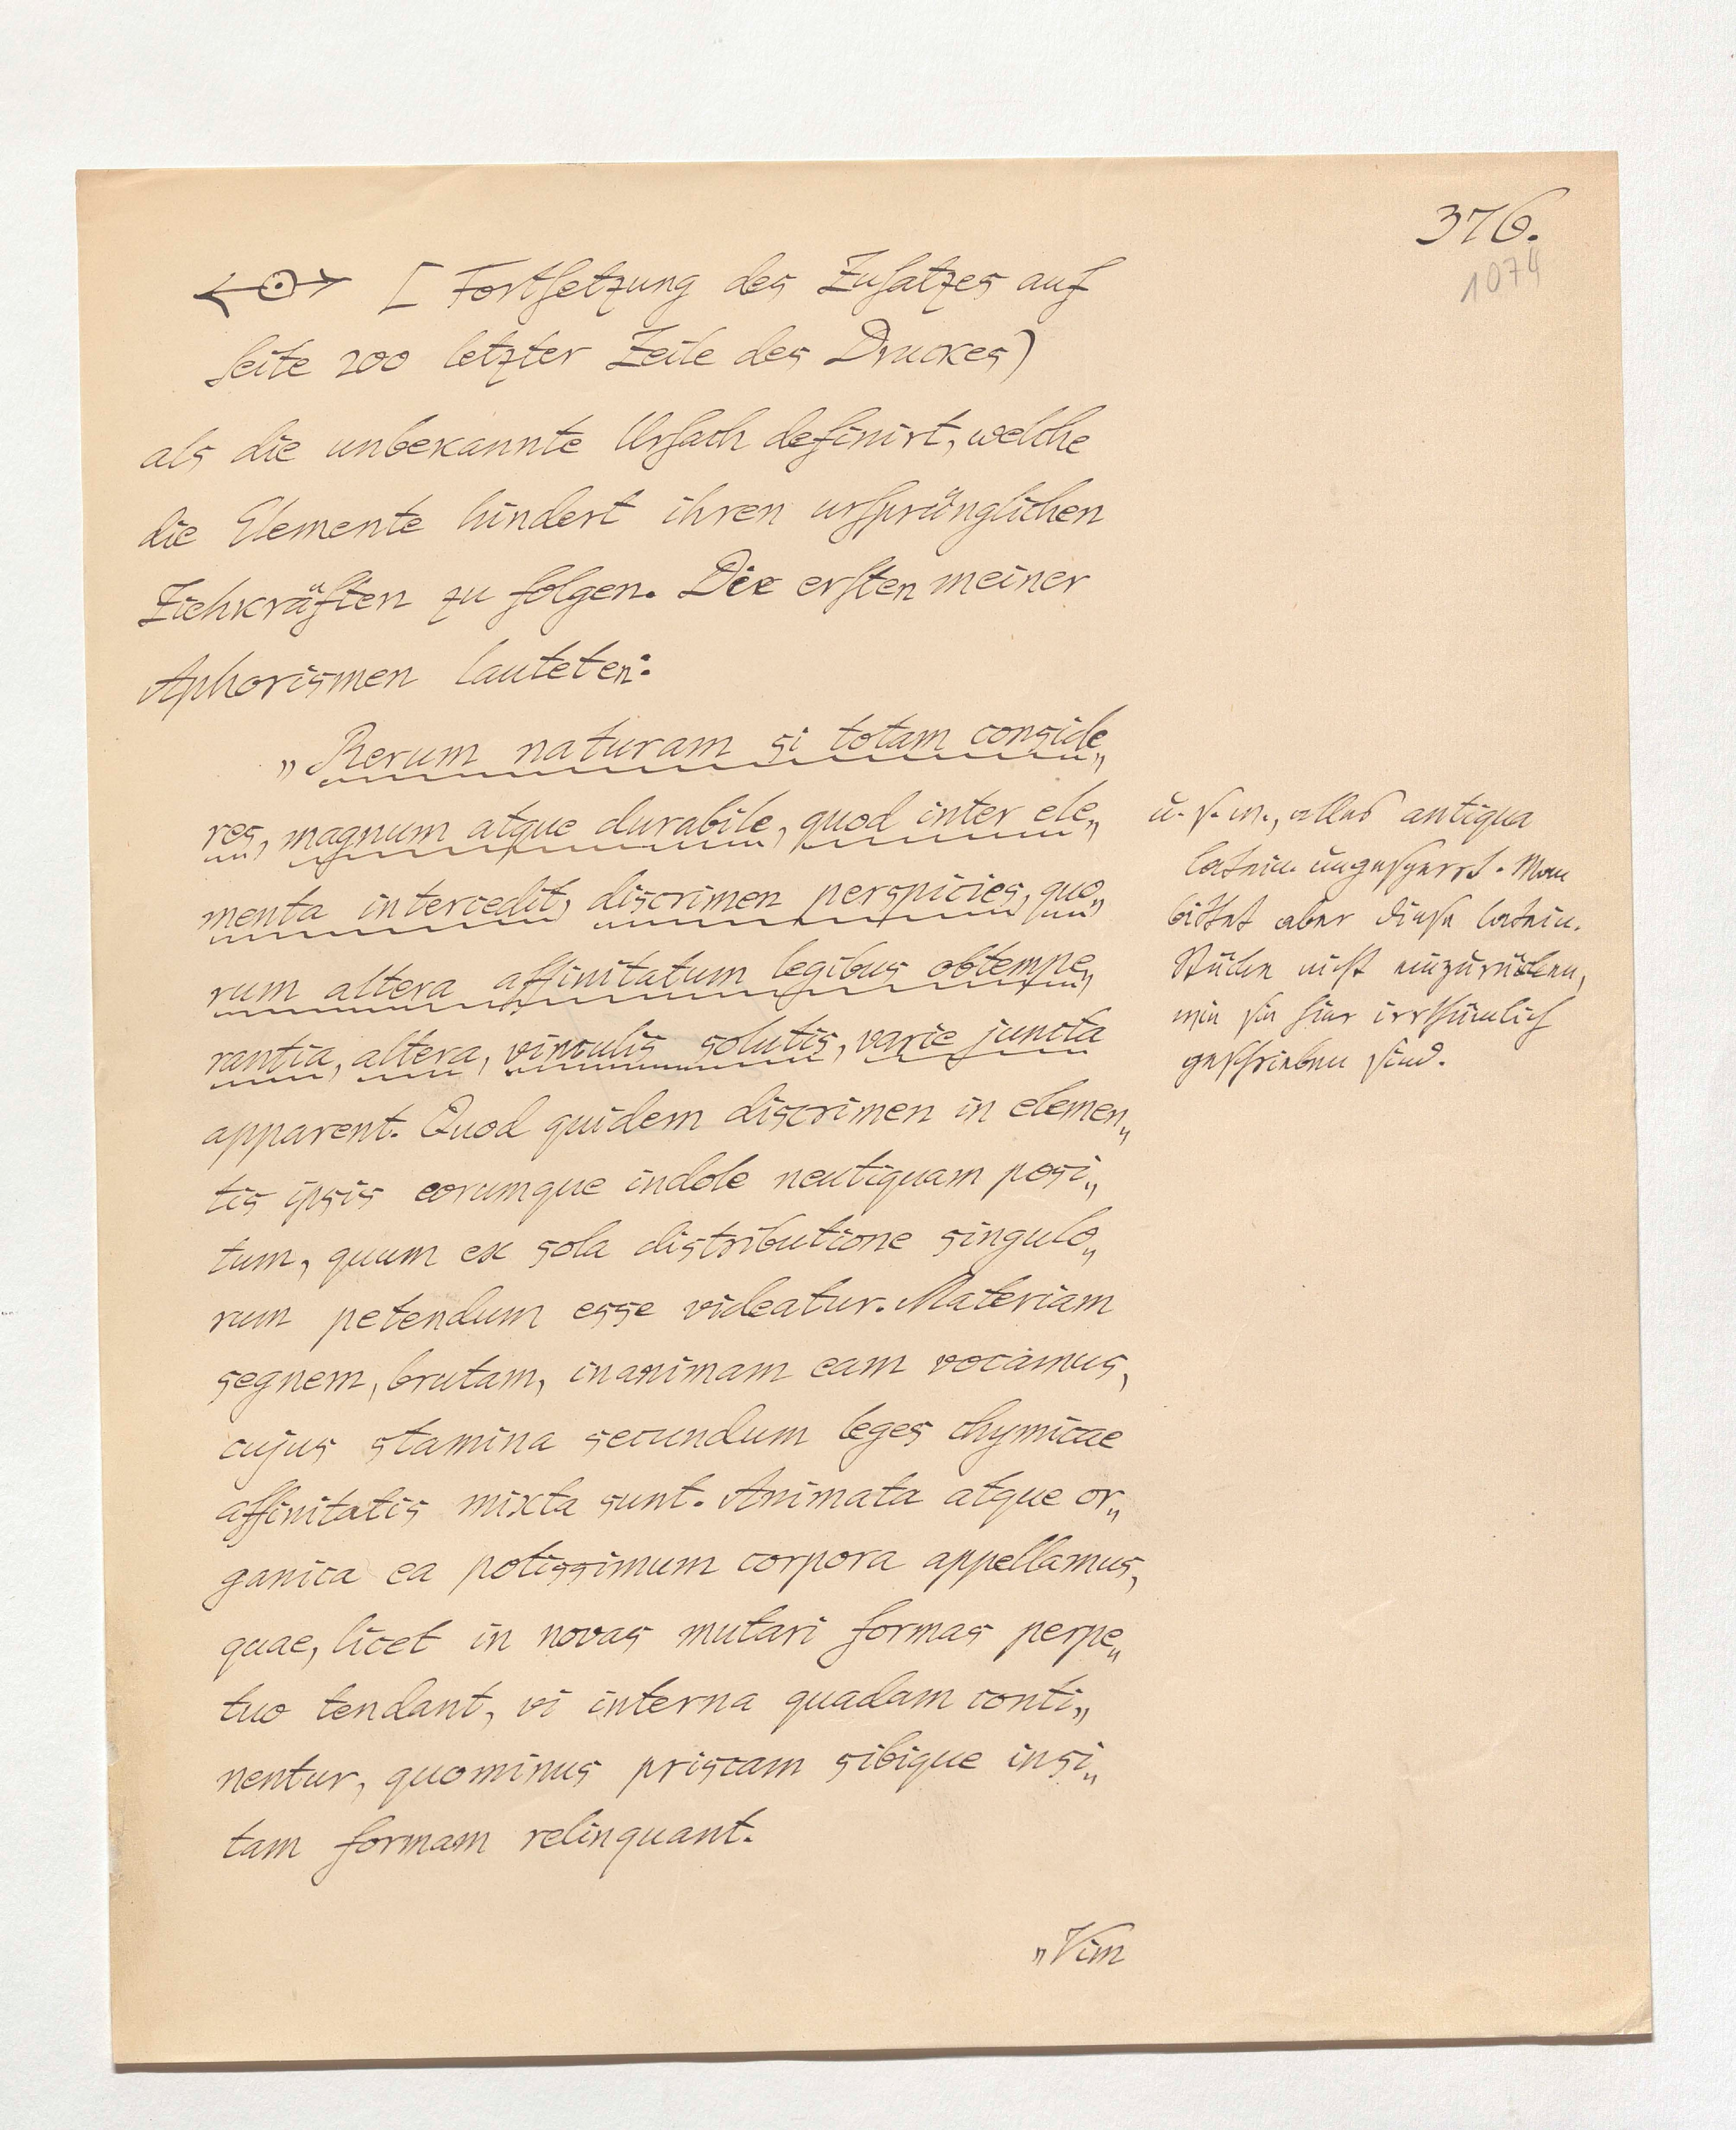 376.
1074
[ Fortsetzung des Zusatzes auf
Seite 200 letzter Zeile des Druckes)
als die unbekannte Ursach definirt, welche
die Elemente hindert ihren ursprünglichen
Ziehkräften zu folgen. Die ersten meiner
Aphorismen lauteten:
„Rerum naturam si totam conside„
res, magnum atque durabile, quod inter ele„
menta intercedit, discrimen perspicies, quo„
rum altera affinitatum legibus obtempe„
rantia, altera, vinculis solutis, varie juncta
apparent. Quod quidem discrimen in elemen„
tis ipsis eorumque indole neutiquam posi„
tum, quum ex sola distributione singulo„
rum petendum esse videatur. Materiam
segnem, brutam, inanimam eam vocamus,
cujus stamina secundum leges chymicae
affinitatis mixta sunt. Animata atque or„
ganica ea potissimum corpora appellamus,
quae, licet in novas mutari formas perpe„
tuo tendant, vi interna quadam conti„
nentur, quominus priscam sibique insi„
tam formam relinquant.
„Vim
u. s. w., alles antiqua
latein. ungesperrt. Man
bittet aber diese latein.
Stücke nicht einzurücken,
wie sie hier irrthümlich
geschrieben sind.